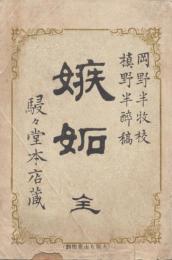 岡野半牧校
槙野半醉稿
嫉妬 全
駸々堂本店藏